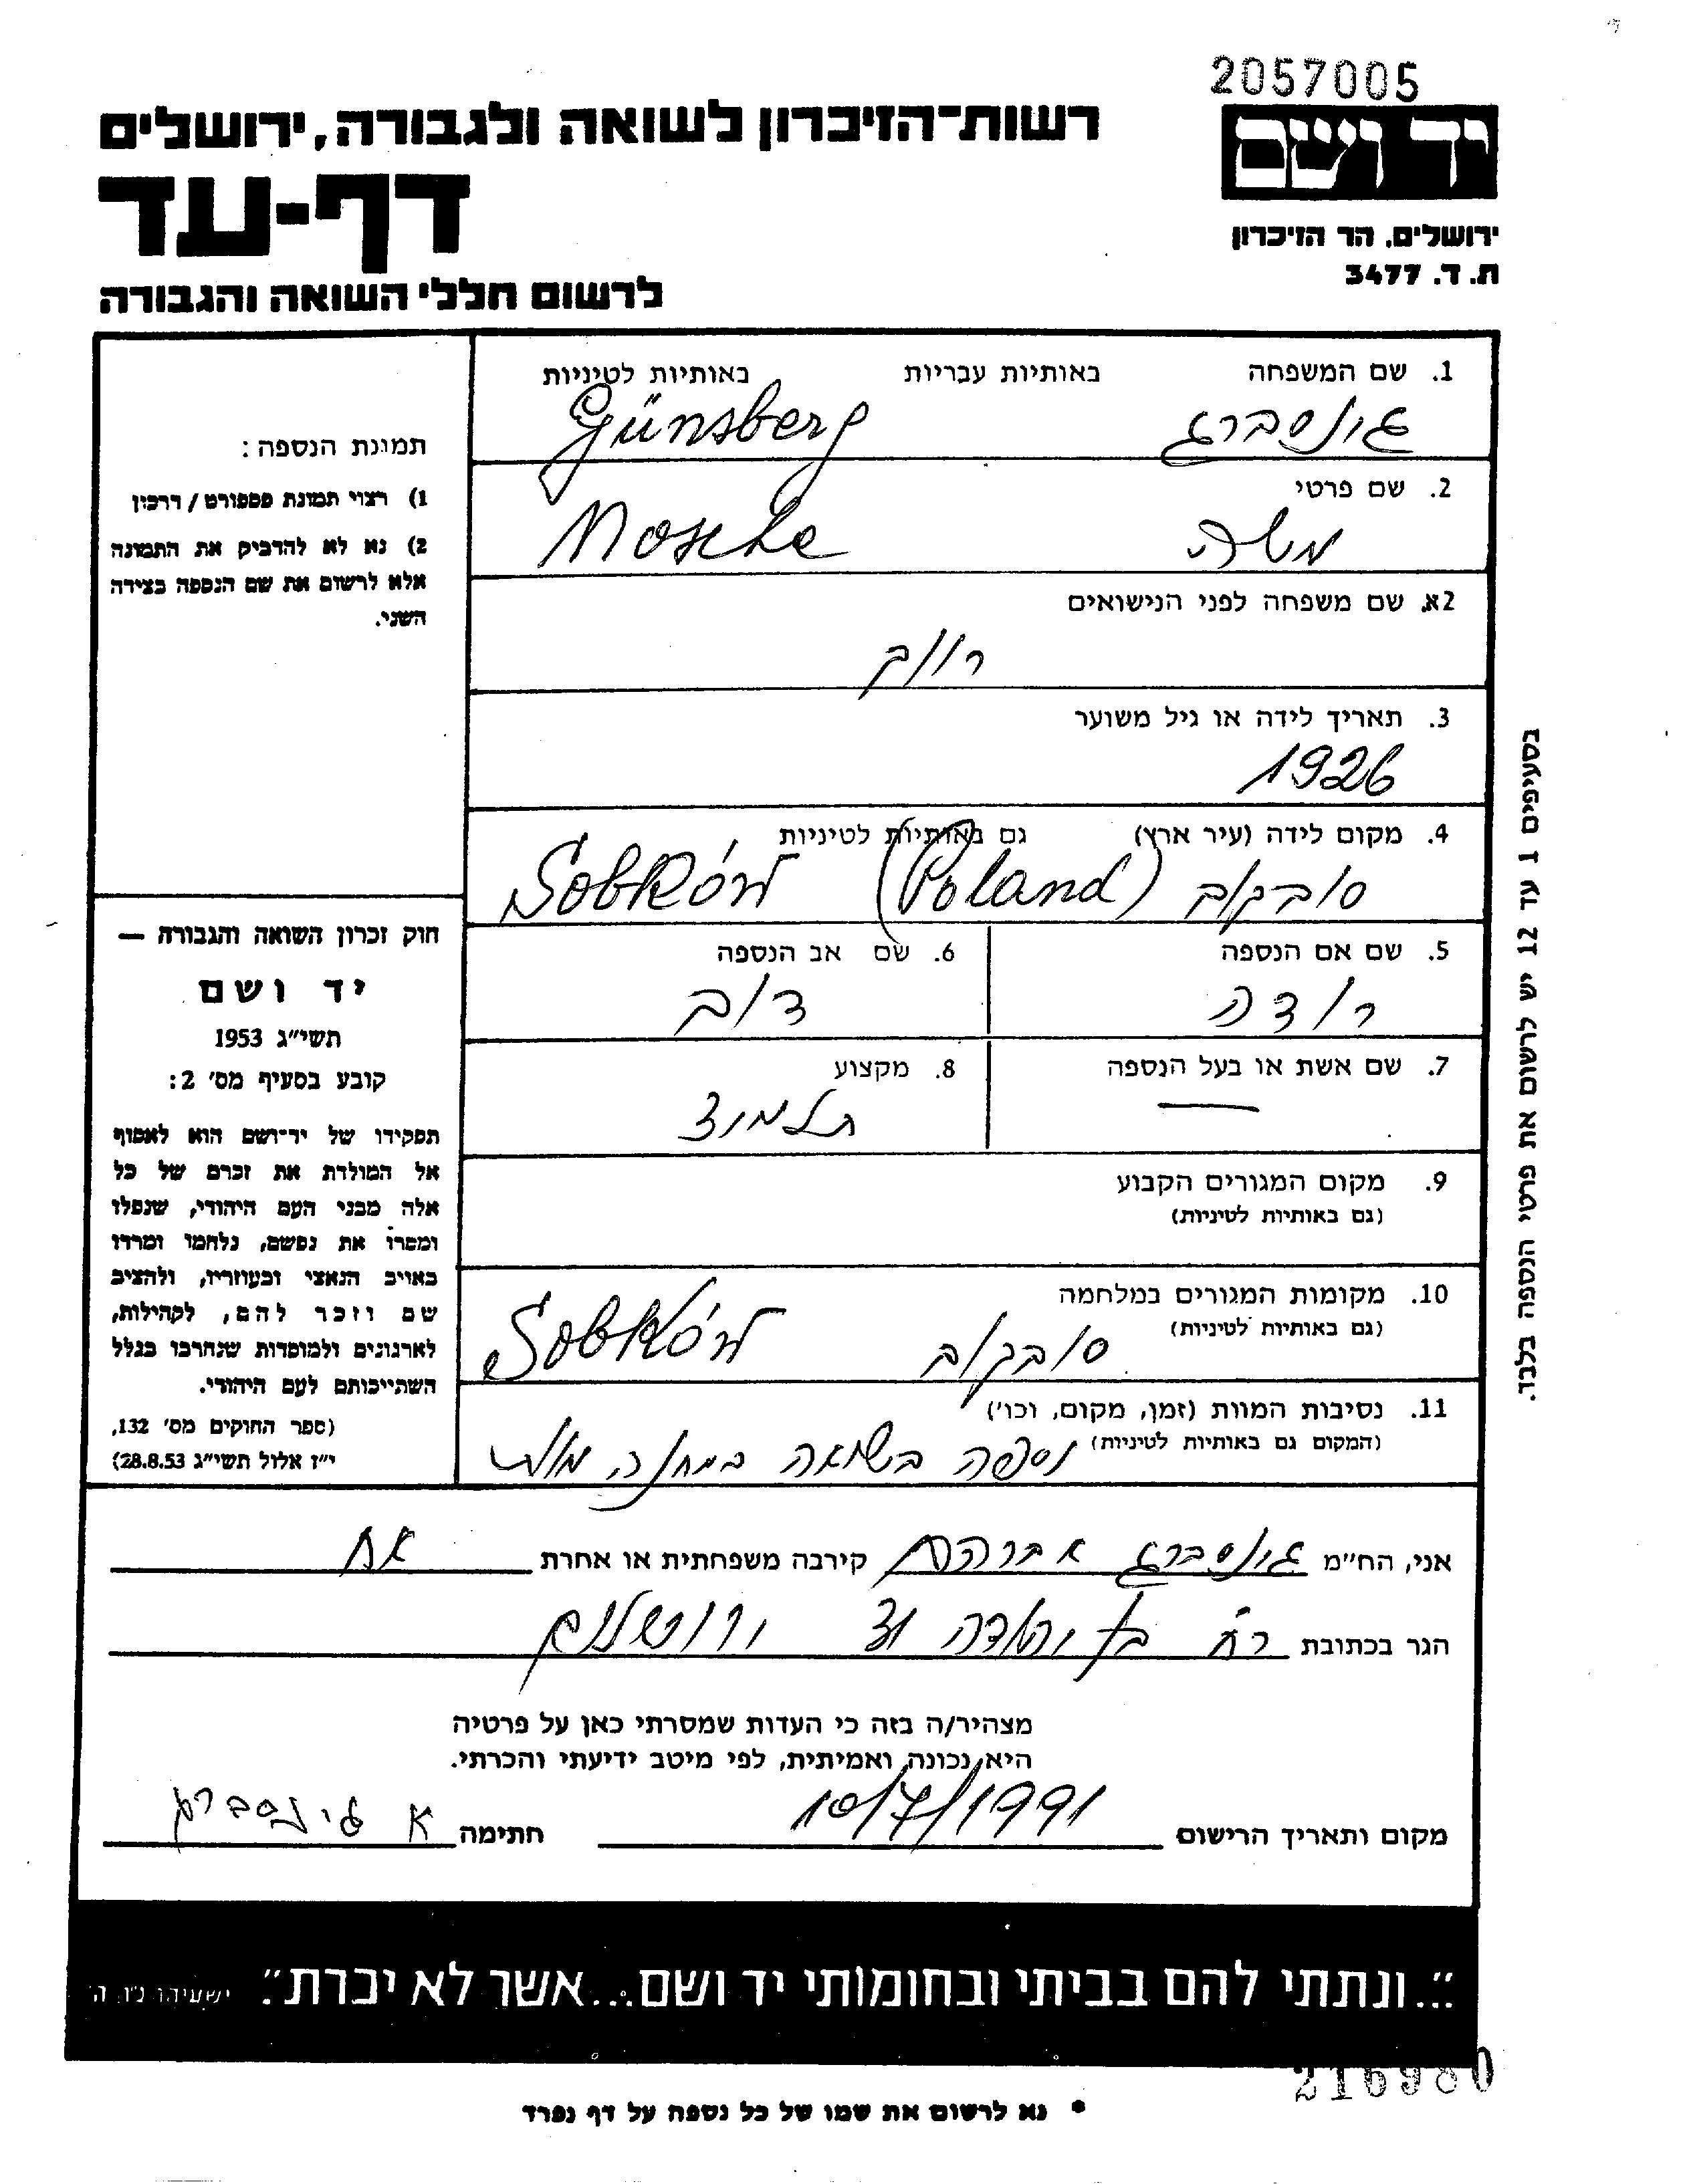 2057005
יד ושם
רשות־הזיכרון לשואה ולגבורה, ירושלים
דף-עד
ירושלים. הר הזיכרון
ת. ד. 3477
לרשום חללי השואה והגבורה
1. שם המשפחה באותיות עבריות באותיות לטיניות
גינסברג Günsberg
2. שם פרטי
משה Mosche
2א. שם משפחה לפני הנישואים
רווק
3. תאריך לידה או גיל משוער
1926
4. מקום לידה (עיר ארץ) גם באותיות לטיניות
סובקוב (Poland) Sobków
5. שם אם הנספה 6. שם אב הנספה
דוב
7. שם אשת או בעל הנספה 8. מקצוע
— תלמיד
9. מקום המגורים הקבוע
(גם באותיות לטיניות)
10. מקומות המגורים במלחמה
(גם באותיות לטיניות)
סובקוב Sobków
11. נסיבות המוות (זמן, מקום, וכו')
(המקום גם באותיות לטיניות)
נספה בשואה במחנה מוות
תמונת הנספה:
1) רצוי תמונת פספורט / דרכון
2) נא לא להדביק את התמונה
אלא לרשום את שם הנספה בצידה
השני.
חוק זכרון השואה והגבורה —
יד ושם
תשי״ג 1953
קובע בסעיף מס׳ 2:
תפקידו של יד־ושם הוא לאסוף
אל המולדת את זכרם של כל
אלה מבני העם היהודי, שנפלו
ומסרו את נפשם, נלחמו ומרדו
באויב הנאצי ובעוזריו, ולהציב
שם וזכר להם, לקהילות,
לארגונים ולמוסדות שנחרבו בגלל
השתייכותם לעם היהודי.
(ספר החוקים מס׳ 132,
י״ז אלול תשי״ג 28.8.53)
בסעיפים 1 עד 12 יש לרשום את פרטי הנספה בלבד.
אני, הח״מ גינסברג אברהם קירבה משפחתית או אחרת אח
הגר בכתובת רח בן יהודה ירושלים
מצהיר/ה בזה כי העדות שמסרתי כאן על פרטיה
היא נכונה ואמיתית, לפי מיטב ידיעתי והכרתי.
מקום ותאריך הרישום 10/7/1991 חתימה א גינסברג
״...ונתתי להם בביתי ובחומותי יד ושם...אשר לא יכרת״. ישעיהו נ״ו, ה׳
216980
* נא לרשום את שמו של כל נספה על דף נפרד